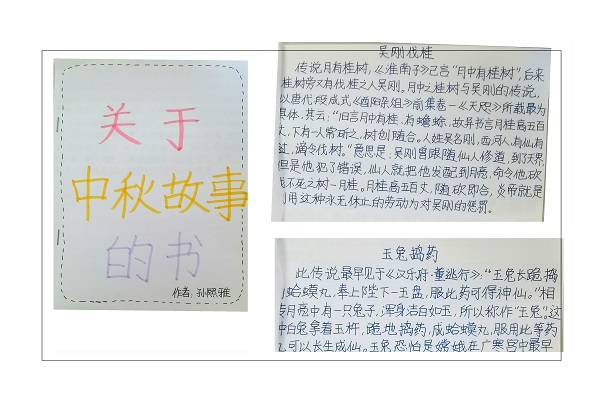 关于
中秋故事
的书
作者:孙熙雅
吴刚伐桂
传说月有桂树,《淮南子》已言"月中有桂树",后来
桂树旁又有伐桂之人吴刚。月中之桂树与吴刚的传说,
以唐代段成式《酉阳杂俎》前集卷一《天咫》所载最为
具体,其云:"旧言月中有桂,有蟾蜍,故异书言月桂高五百
丈,下有一人常斫之,树创随合。人姓吴名刚,西河人,有仙,有
过,谪令伐树。"意思是:吴刚曾跟随仙人修道,到了天界,
但是他犯了错误,仙人就把他发配到月亮,命令他砍
伐不死之树—月桂。月桂高五百丈,随砍即合,炎帝就是
利用这种永无休止的劳动为对吴刚的惩罚。
玉兔捣药
此传说最早见于《汉乐府·董逃行》:"玉兔长跪捣
蛤蟆丸,奉上陛下一玉盘,服此药可得神仙。"相
传月亮中有一只兔子,浑身洁白如玉,所以你作"玉兔"。这
中白兔拿着玉杵,跪地捣药,成蛤蟆丸,服用此等药
可以长生成仙。玉兔恐怕是嫦娥在广寒宫中最早